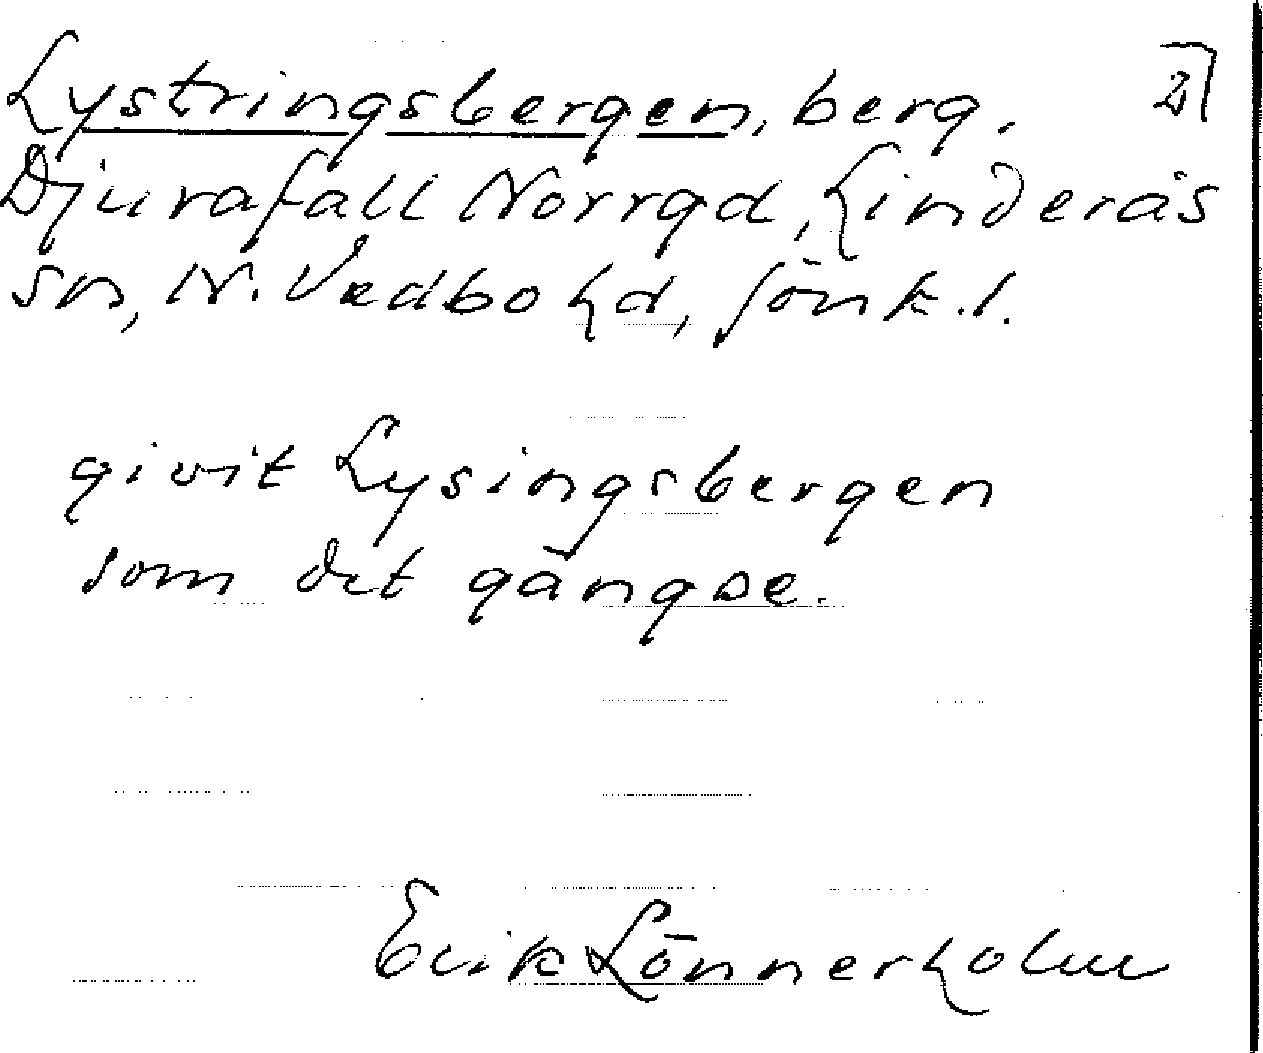 Lystringsbergen, berg.
Djurafall Norrgd, Linderås
sn, N. Vedbo hd, Jönk. l.
givit Lysingsbergen
som det gängse.
Erik Lönnerholm